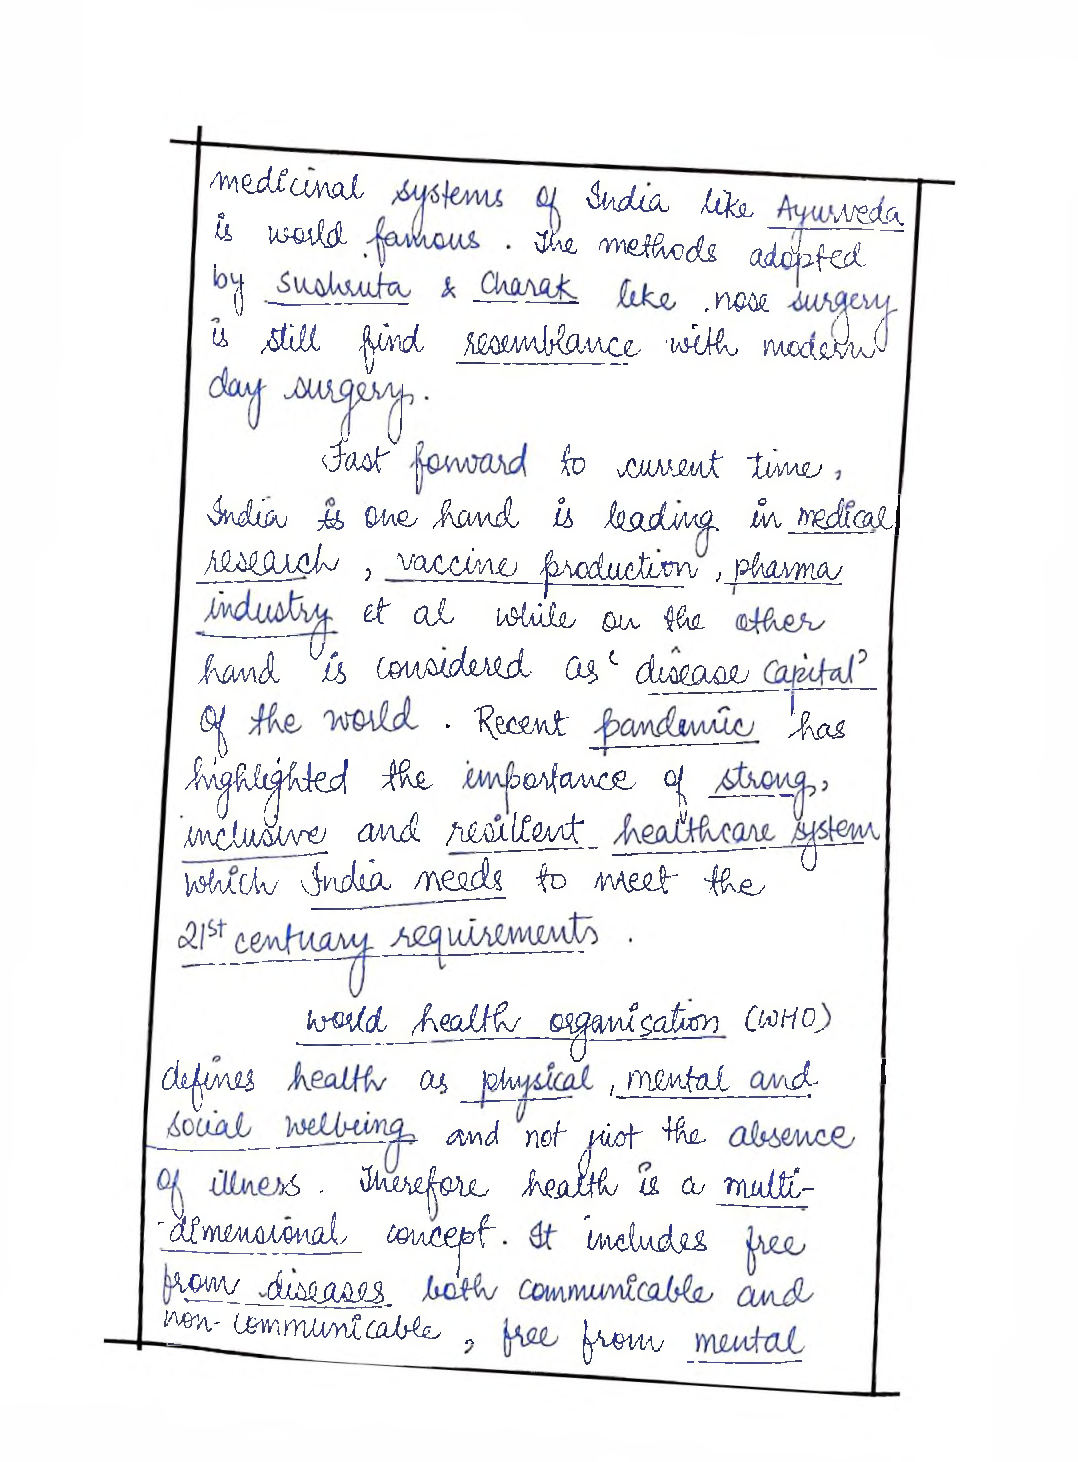 medicinal systems of India like Ayurveda
is world famous. The methods adopted
by Sushruta & Charak like nose surgery
is still find resemblance with modern
day surgery.
Fast forward to current time,
India is one hand is leading in medical
research, vaccine production, pharma
industry et al while on the other
hand is considered as 'disease capital'
of the world. Recent pandemic has
highlighted the importance of strong,
inclusive and resilient healthcare system
which India needs to meet the
21st centuary requirements.
World health organisation (WHO)
defines health as physical, mental and
social welbeing and not just the absence
of illness. Therefore health is a multi-
-dimensional concept. It includes free
from diseases both communicable and
non-communicable, free from mental